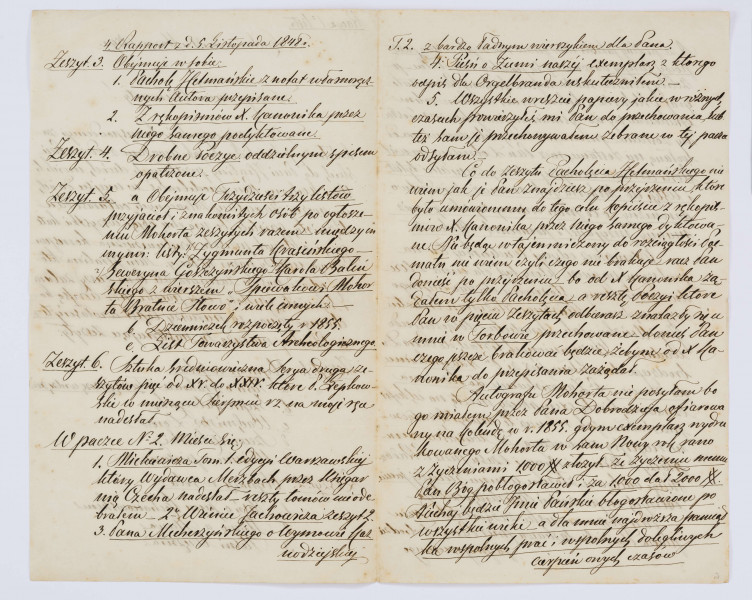 4. Rapport z d. 5. Listopada 1848 r.
Zeszyt. 3. Obejmuje w sobie
1. Pacholę Hetmańskie z notat własnoręcz
nych Autora przepisane.
2. Z rękopismów X. Kanonika przez
niego samego podyktowane.
Zeszyt. 4. Drobne Poezye oddzielnym spisem
opatrzone.
Zeszyt. 5. a Obejmuje Trzydzieści trzy listów
przyjaciół i znakomitych osób po ogłosze-
niu Mohorta zeszytych razem między in
nymi: listy: Zygmunta Krasińskiego
Seweryna Goszczyńskiego Karola Baliń
skiego z wierszem „Śpiewakowi Mohor
ta Bratnie Słowo" i wielu innych.
b. Dzienniczek rozpoczęty r 1855.
c. List Towarzystwa Archeologicznego
Zeszyt. 6. Sztuka średniowieczna Serya druga ze-
szytów pięć od XV. do XXIV. które P.
w miesiącu Sierpniu rz na moje ręce
nadesłał.
W paczce No 2. Mieści się
1. Mickiewicza Tom. 1. edycyi Warszawskiej
który Wydawca Merzbach przez Księgar
nię Czecha nadesłał resztę tomów nie ode
brałem 2o Wieniec zeszyt 2.
3. Pana Mecherzyńskiego o Wymowie Kaz
nodziejskiej
T. 2. z bardzo ładnym wierszykiem dla Pana.
4. Pieśń o Ziemi naszej exemplarz z którego
odpis dla Orgelbranda uskuteczniłem.
5. Wszystkie wreszcie papiery jakie w różnych
czasach powierzyłeś mi Pan do przechowania lub
też sam je przechowywałem zebrane w tej paczce
odsyłam.
Co do zeszytu Pacholęcia Hetmańskiego nie
wiem jak je Pan znajdziesz po przejrzeniu które
było umówionemu do tego celu kopiście z rękopis
mów X. Kanonika przez niego samego dyktowa-
ne. Nie będąc wtajemniczony do rozciągłości Poe
matu nie wiem czyli czego nie brakuje racz Pan
donieść po przejrzeniu bo od X Kanonika za-
dałem tylko Pacholęcia, a resztę Poezyi które
Pan w pięciu zeszytach odbierasz znalazły się u
mnie w Torbowie przechowane donieś Pan
czego jeszcze brakować będzie żebym od X Ka-
nonika do przepisania zażądał.
Autografu Mohorta nie posyłam bo
go miałem przez Pana Dobrodzieja ofiarowa
ny na Kolendę w r. 1855. gdym exemplarz wydru
kowanego Mohorta w sam Nowy rok rano
z życzeniami 1000 # złożył ze życzeniem niemu
Pan Bóg pobłogosławił i za 1000 dał 2000 #
Niechaj będzie Imie Pańskie błogosławione po
wszystkie wieki a dla mnie najdroższa pamiąt
ka wspólnych prac i wspólnych dolegliwych
cierpień owych czasów